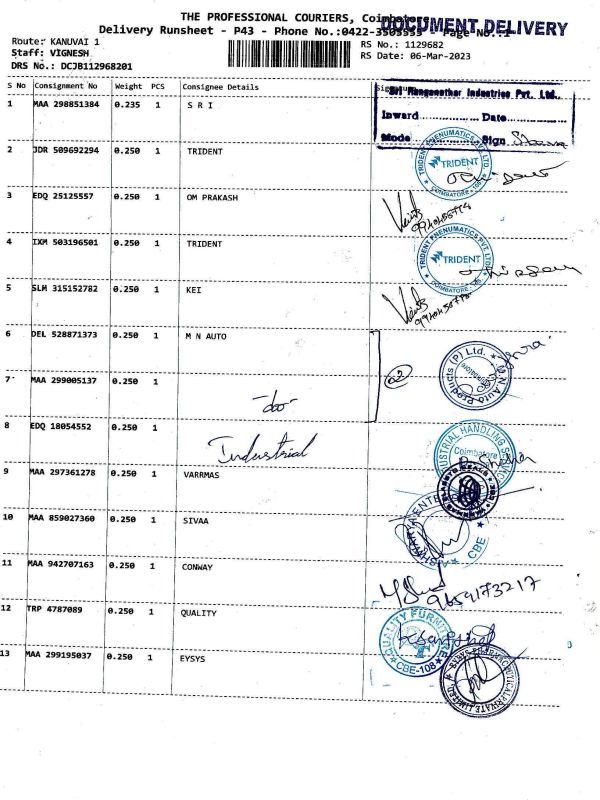 THE PROFESSIONAL COURIERS, Coimbatore
DOCUMENT DELIVERY
Delivery Runsheet - P43 - Phone No.:0422-3505555 - Page No.:1
Route: KANUVAI 1
RS No.: 1129682
Staff: VIGNESH
RS Date: 06-Mar-2023
DRS No.: DCJB112968201
S No Consignment No Weight PCS Consignee Details Signature
Sri Ranganathar Industries Pvt. Ltd.,
1 MAA 298851384 0.235 1 S R I
Inward Date
Mode Sign
2 JDR 509692294 0.250 1 TRIDENT
TRIDENT PNEUMATICS PVT. LTD.
TRIDENT
COIMBATORE
3 EDQ 25125557 0.250 1 OM PRAKASH
4 IXM 503196501 0.250 1 TRIDENT
TRIDENT PNEUMATICS PVT. LTD.
TRIDENT
COIMBATORE
5 SLM 315152782 0.250 1 KEI
6 DEL 528871373 0.250 1 M N AUTO
M.N. Auto Products (P) Ltd.
02
7 MAA 299005137 0.250 1
-do-
8 EDQ 18054552 0.250 1
Industrial
INDUSTRIAL HANDLING
Coimbatore
9 MAA 297361278 0.250 1 VARRMAS
10 MAA 859027360 0.250 1 SIVAA
CBE
11 MAA 942707163 0.250 1 CONWAY
9659173217
12 TRP 4787089 0.250 1 QUALITY
QUALITY FURNITURE
CBE-108
13 MAA 299195037 0.250 1 EYSYS
PRIVATE LIMITED